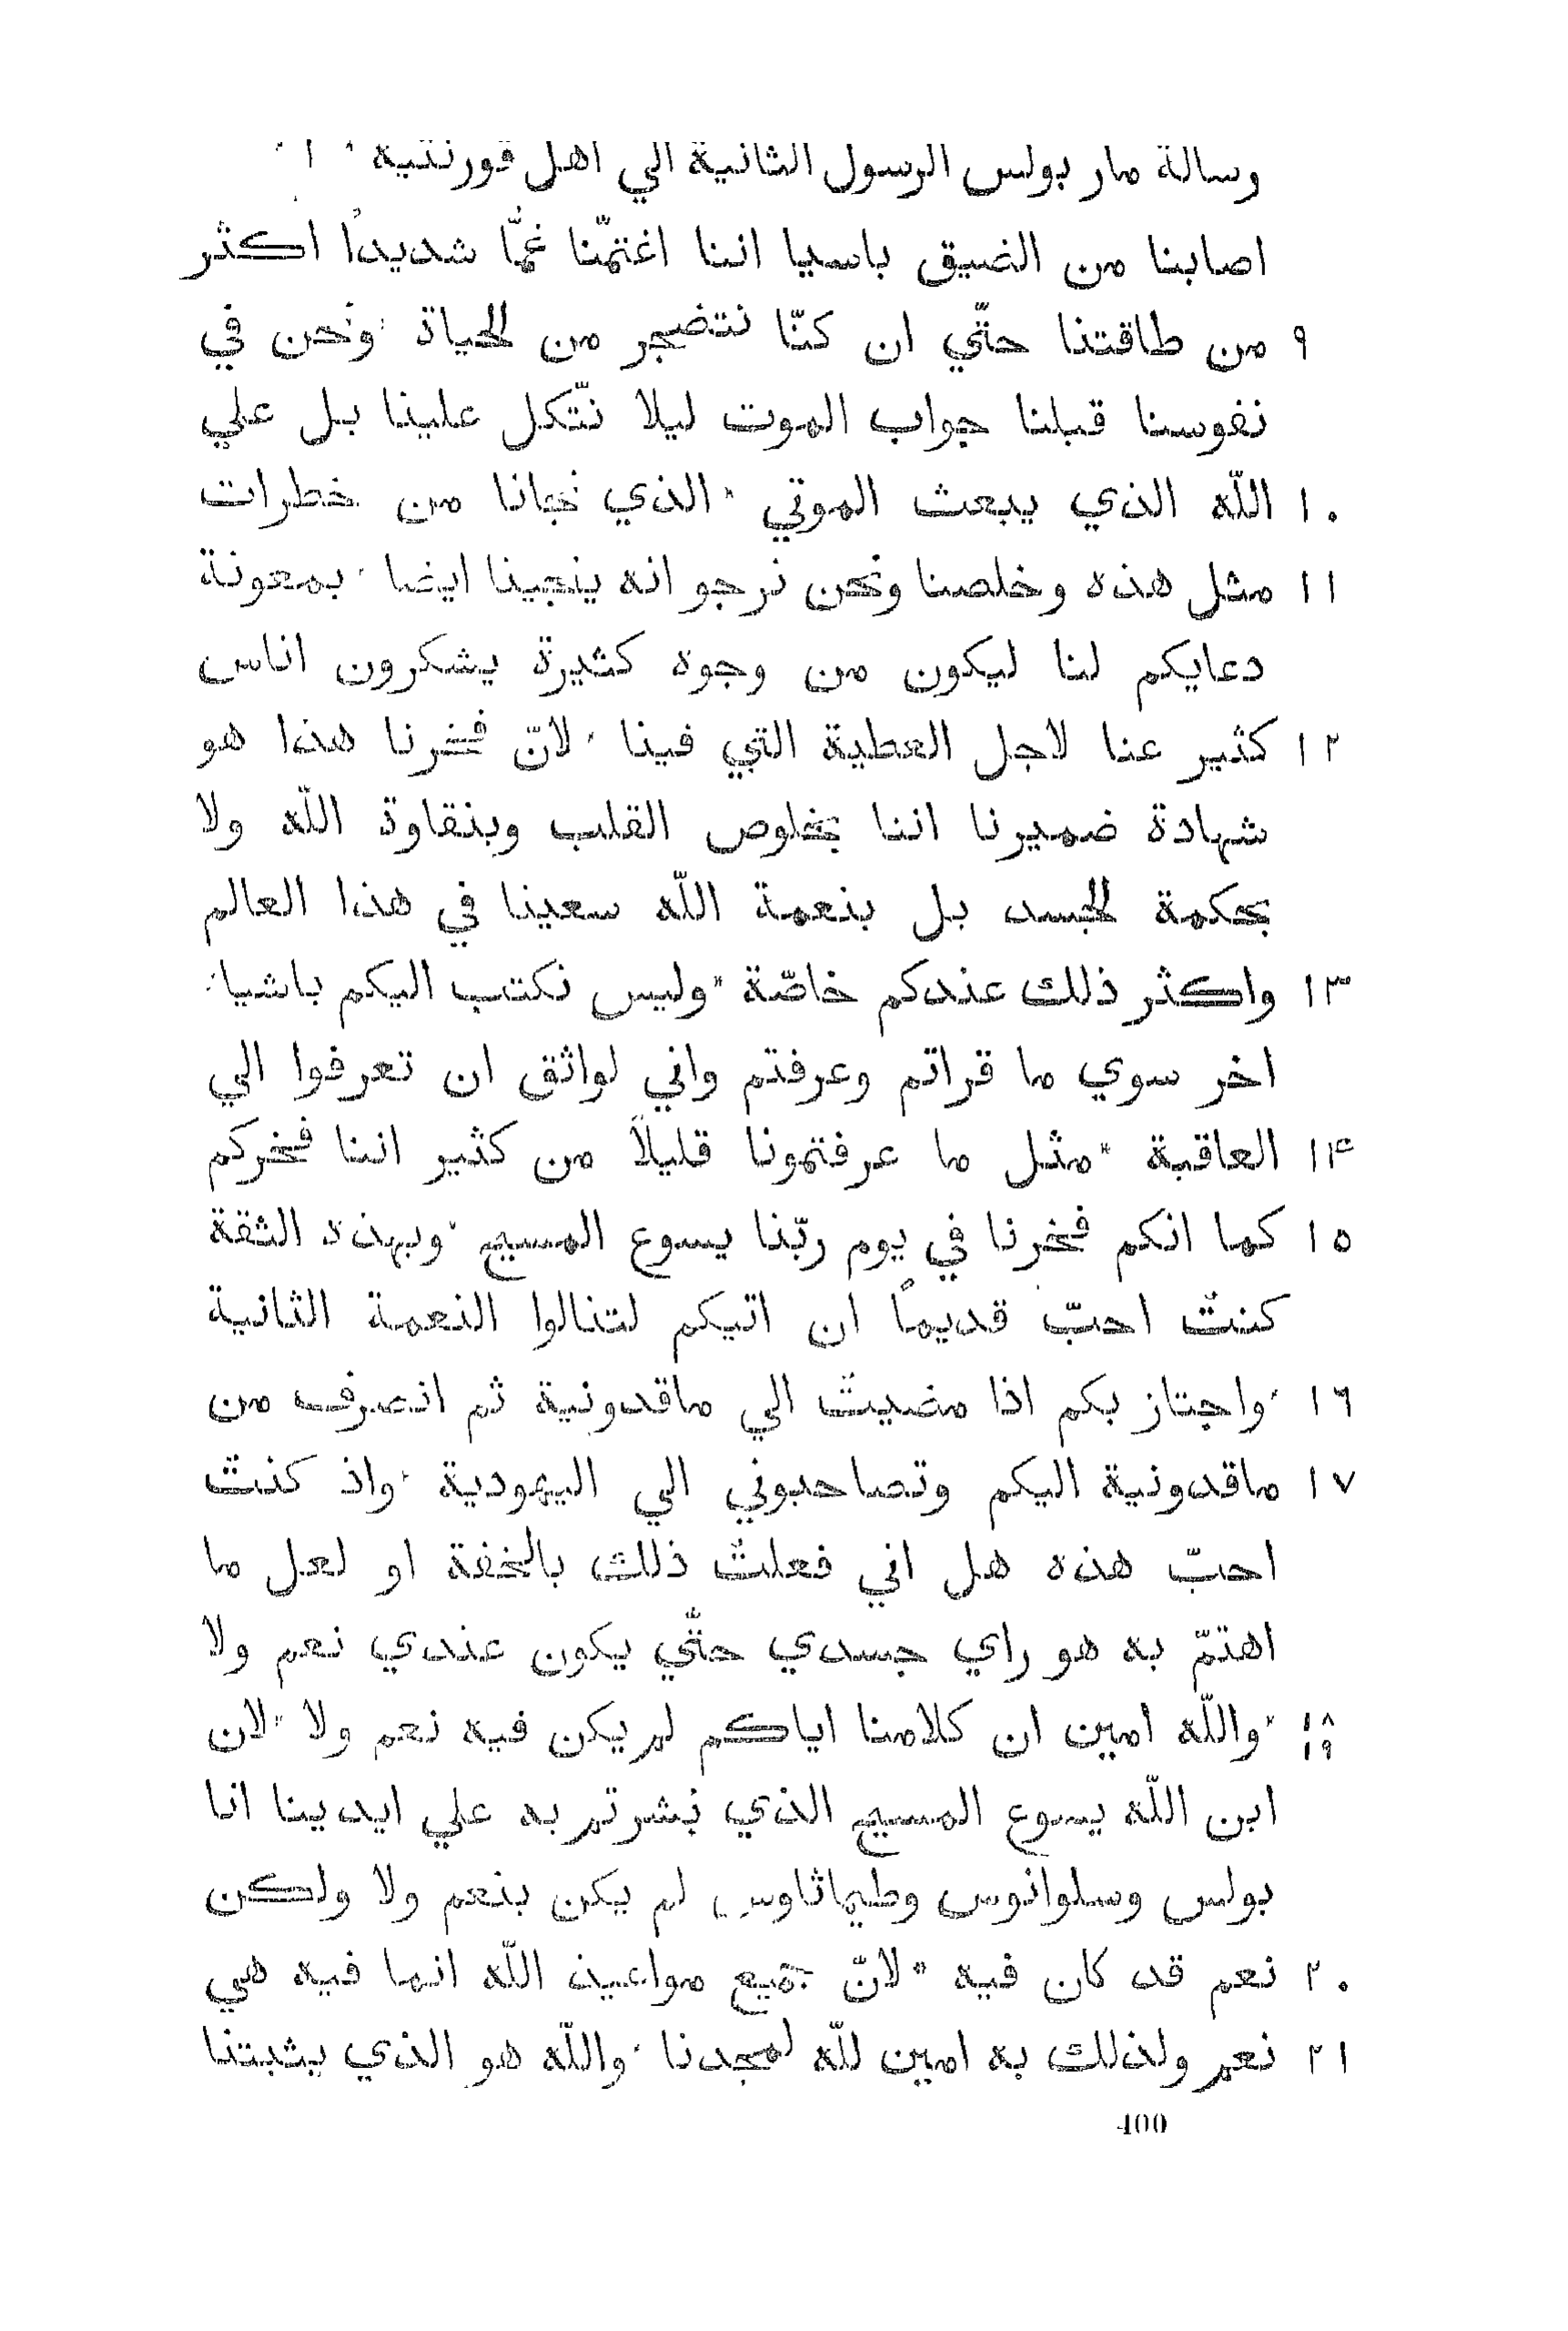 رسالة مار بولس الرسول الثانية الي اهل قورنتية * ١ *
اصابنا من الضيق باسيا اننا اغتمّنا غمًّا شديدًا اكثر
٩ من طاقتنا حتّي ان كنّا نتضجر من الحياة * ونحن في
نفوسنا قبلنا جواب الموت ليلا نتّكل علينا بل علي
١٠ اللّه الذي يبعث الموتي * الذي نجانا من خطرات
١١ مثل هذه وخلصنا ونحن نرجو انه ينجينا ايضا * بمعونة
دعايكم لنا ليكون من وجوه كثيرة يشكرون اناس
١٢ كثير عنا لاجل العطية التي فينا * لانّ فخرنا هذا هو
شهادة ضميرنا اننا بخلوص القلب وبنقاوة اللّه ولا
بحكمة الجسد بل بنعمة اللّه سعينا في هذا العالم
١٣ واكثر ذلك عندكم خاصّة * وليس نكتب اليكم باشياء
اخر سوي ما قراتم وعرفتم واني لواثق ان تعرفوا الي
١۴ العاقبة * مثل ما عرفتمونا قليلاً من كثير اننا فخركم
١٥ كما انكم فخرنا في يوم ربّنا يسوع المسيح * وبهذه الثقة
كنتُ احبّ قديمًا ان اتيكم لتنالوا النعمة الثانية
١٦ * واجتاز بكم اذا مضيتُ الي ماقدونية ثم انصرف من
١٧ ماقدونية اليكم وتصاحبوني الي اليهودية * واذ كنت
احبّ هذه هل اني فعلتُ ذلك بالخفة او لعل ما
اهتمّ به هو راي جسدي حتّي يكون عندي نعم ولا
١٨ * واللّه امين ان كلامنا اياكم لم يكن فيه نعم ولا * لان
١٩
ابن اللّه يسوع المسيح الذي بُشرتم به علي ايدينا انا
بولس وسلوانوس وطيماثاوس لم يكن بنعم ولا ولكن
٢٠ نعم قد كان فيه * لانّ جميع مواعيد اللّه انها فيه هي
٢١ نعم ولذلك به امين للّه لمجدنا * واللّه هو الذي يثبتنا
400